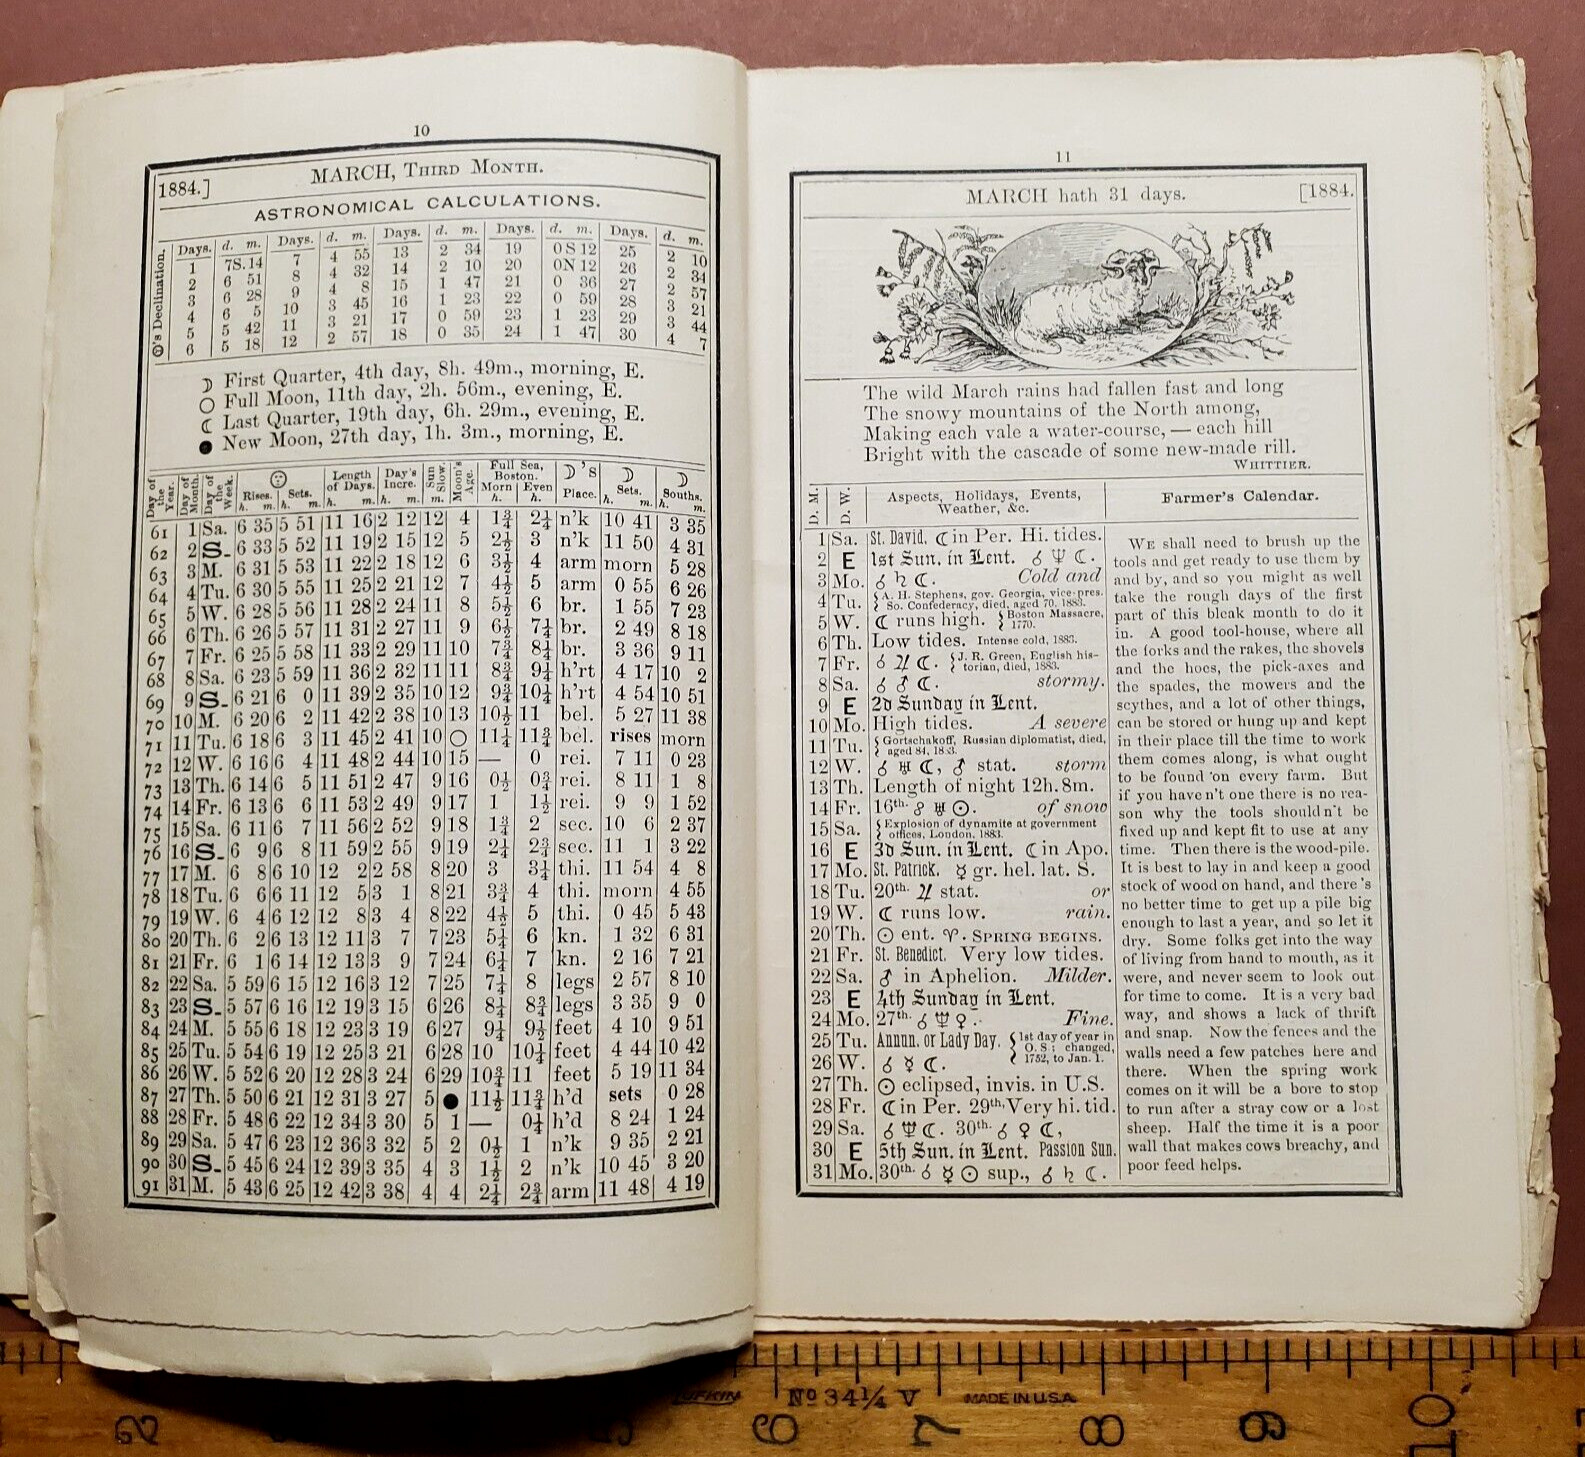 10
1884.] MARCH, THIRD MONTH.
ASTRONOMICAL CALCULATIONS.
☉'s Declination.
Days. d. m. Days. d. m. Days. d. m. Days. d. m. Days. d. m.
1 7S.14 7 4 55 13 2 34 19 0S12 25 2 10
2 6 51 8 4 32 14 2 10 20 0N12 26 2 34
3 6 28 9 4 8 15 1 47 21 0 36 27 2 57
4 6 5 10 3 45 16 1 23 22 0 59 28 3 21
5 5 42 11 3 21 17 0 59 23 1 23 29 3 44
6 5 18 12 2 57 18 0 35 24 1 47 30 4 7
☽ First Quarter, 4th day, 8h. 49m., morning, E.
○ Full Moon, 11th day, 2h. 56m., evening, E.
☾ Last Quarter, 19th day, 6h. 29m., evening, E.
● New Moon, 27th day, 1h. 3m., morning, E.
Day of the Year. Day of Month. Day of the Week. ☉ Rises. h. m. Sets. h. m. Length of Days. h. m. Day's Incre. h. m. Sun Slow. m. Moon's Age. Full Sea, Boston. Morn h. Even h. ☽'s Place. ☽ Sets. h. m. ☽ Souths. h. m.
61 1 Sa. 6 35 5 51 11 16 2 12 12 4 1¾ 2¼ n'k 10 41 3 35
62 2 S. 6 33 5 52 11 19 2 15 12 5 2½ 3 n'k 11 50 4 31
63 3 M. 6 31 5 53 11 22 2 18 12 6 3½ 4 arm morn 5 28
64 4 Tu. 6 30 5 55 11 25 2 21 12 7 4½ 5 arm 0 55 6 26
65 5 W. 6 28 5 56 11 28 2 24 11 8 5½ 6 br. 1 55 7 23
66 6 Th. 6 26 5 57 11 31 2 27 11 9 6½ 7¼ br. 2 49 8 18
67 7 Fr. 6 25 5 58 11 33 2 29 11 10 7¾ 8¼ br. 3 36 9 11
68 8 Sa. 6 23 5 59 11 36 2 32 11 11 8¾ 9¼ h'rt 4 17 10 2
69 9 S. 6 21 6 0 11 39 2 35 10 12 9¾ 10¼ h'rt 4 54 10 51
70 10 M. 6 20 6 2 11 42 2 38 10 13 10½ 11 bel. 5 27 11 38
71 11 Tu. 6 18 6 3 11 45 2 41 10 ○ 11¼ 11¾ bel. rises morn
72 12 W. 6 16 6 4 11 48 2 44 10 15 — 0 rei. 7 11 0 23
73 13 Th. 6 14 6 5 11 51 2 47 9 16 0½ 0¾ rei. 8 11 1 8
74 14 Fr. 6 13 6 6 11 53 2 49 9 17 1 1½ rei. 9 9 1 52
75 15 Sa. 6 11 6 7 11 56 2 52 9 18 1¾ 2 sec. 10 6 2 37
76 16 S. 6 9 6 8 11 59 2 55 9 19 2¼ 2¾ sec. 11 1 3 22
77 17 M. 6 8 6 10 12 2 2 58 8 20 3 3¼ thi. 11 54 4 8
78 18 Tu. 6 6 6 11 12 5 3 1 8 21 3¾ 4 thi. morn 4 55
79 19 W. 6 4 6 12 12 8 3 4 8 22 4½ 5 thi. 0 45 5 43
80 20 Th. 6 2 6 13 12 11 3 7 7 23 5¼ 6 kn. 1 32 6 31
81 21 Fr. 6 1 6 14 12 13 3 9 7 24 6¼ 7 kn. 2 16 7 21
82 22 Sa. 5 59 6 15 12 16 3 12 7 25 7¼ 8 legs 2 57 8 10
83 23 S. 5 57 6 16 12 19 3 15 6 26 8¼ 8¾ legs 3 35 9 0
84 24 M. 5 55 6 18 12 23 3 19 6 27 9¼ 9½ feet 4 10 9 51
85 25 Tu. 5 54 6 19 12 25 3 21 6 28 10 10¼ feet 4 44 10 42
86 26 W. 5 52 6 20 12 28 3 24 6 29 10¾ 11 feet 5 19 11 34
87 27 Th. 5 50 6 21 12 31 3 27 5 ● 11½ 11¾ h'd sets 0 28
88 28 Fr. 5 48 6 22 12 34 3 30 5 1 — 0¼ h'd 8 24 1 24
89 29 Sa. 5 47 6 23 12 36 3 32 5 2 0½ 1 n'k 9 35 2 21
90 30 S. 5 45 6 24 12 39 3 35 4 3 1½ 2 n'k 10 45 3 20
91 31 M. 5 43 6 25 12 42 3 38 4 4 2¼ 2¾ arm 11 48 4 19
11
MARCH hath 31 days. [1884.
The wild March rains had fallen fast and long
The snowy mountains of the North among,
Making each vale a water-course, — each hill
Bright with the cascade of some new-made rill.
WHITTIER.
D. M. D. W. Aspects, Holidays, Events, Weather, &c.
1 Sa. St. David. ☾ in Per. Hi. tides.
2 E 1st Sun. in Lent. ☌ ♆ ☾.
3 Mo. ☌ ♄ ☾. Cold and
4 Tu. A. H. Stephens, gov. Georgia, vice-pres. So. Confederacy, died, aged 70, 1883.
5 W. ☾ runs high. Boston Massacre, 1770.
6 Th. Low tides. Intense cold, 1883.
7 Fr. ☌ ♃ ☾. J. R. Green, English historian, died, 1883.
8 Sa. ☌ ♂ ☾. stormy.
9 E 2d Sunday in Lent.
10 Mo. High tides. A severe
11 Tu. Gortschakoff, Russian diplomatist, died, aged 84, 1883.
12 W. ☌ ♅ ☾, ♂ stat. storm
13 Th. Length of night 12h. 8m.
14 Fr. 16th. ☍ ♅ ☉. of snow
15 Sa. Explosion of dynamite at government offices, London, 1883.
16 E 3d Sun. in Lent. ☾ in Apo.
17 Mo. St. Patrick. ☿ gr. hel. lat. S.
18 Tu. 20th. ♃ stat. or
19 W. ☾ runs low. rain.
20 Th. ☉ ent. ♈. SPRING BEGINS.
21 Fr. St. Benedict. Very low tides.
22 Sa. ♂ in Aphelion. Milder.
23 E 4th Sunday in Lent.
24 Mo. 27th. ☌ ♆ ♀. Fine.
25 Tu. Annun. or Lady Day. 1st day of year in O. S.; changed, 1752, to Jan. 1.
26 W. ☌ ☿ ☾.
27 Th. ☉ eclipsed, invis. in U.S.
28 Fr. ☾ in Per. 29th. Very hi. tid.
29 Sa. ☌ ♆ ☾. 30th. ☌ ♀ ☾,
30 E 5th Sun. in Lent. Passion Sun.
31 Mo. 30th. ☌ ☿ ☉ sup., ☌ ♄ ☾.
Farmer's Calendar.
WE shall need to brush up the
tools and get ready to use them by
and by, and so you might as well
take the rough days of the first
part of this bleak month to do it
in. A good tool-house, where all
the forks and the rakes, the shovels
and the hoes, the pick-axes and
the spades, the mowers and the
scythes, and a lot of other things,
can be stored or hung up and kept
in their place till the time to work
them comes along, is what ought
to be found on every farm. But
if you haven't one there is no rea-
son why the tools shouldn't be
fixed up and kept fit to use at any
time. Then there is the wood-pile.
It is best to lay in and keep a good
stock of wood on hand, and there's
no better time to get up a pile big
enough to last a year, and so let it
dry. Some folks get into the way
of living from hand to mouth, as it
were, and never seem to look out
for time to come. It is a very bad
way, and shows a lack of thrift
and snap. Now the fences and the
walls need a few patches here and
there. When the spring work
comes on it will be a bore to stop
to run after a stray cow or a lost
sheep. Half the time it is a poor
wall that makes cows breachy, and
poor feed helps.
No 34¼ V MADE IN U.S.A.
2 6 7 8 9 10